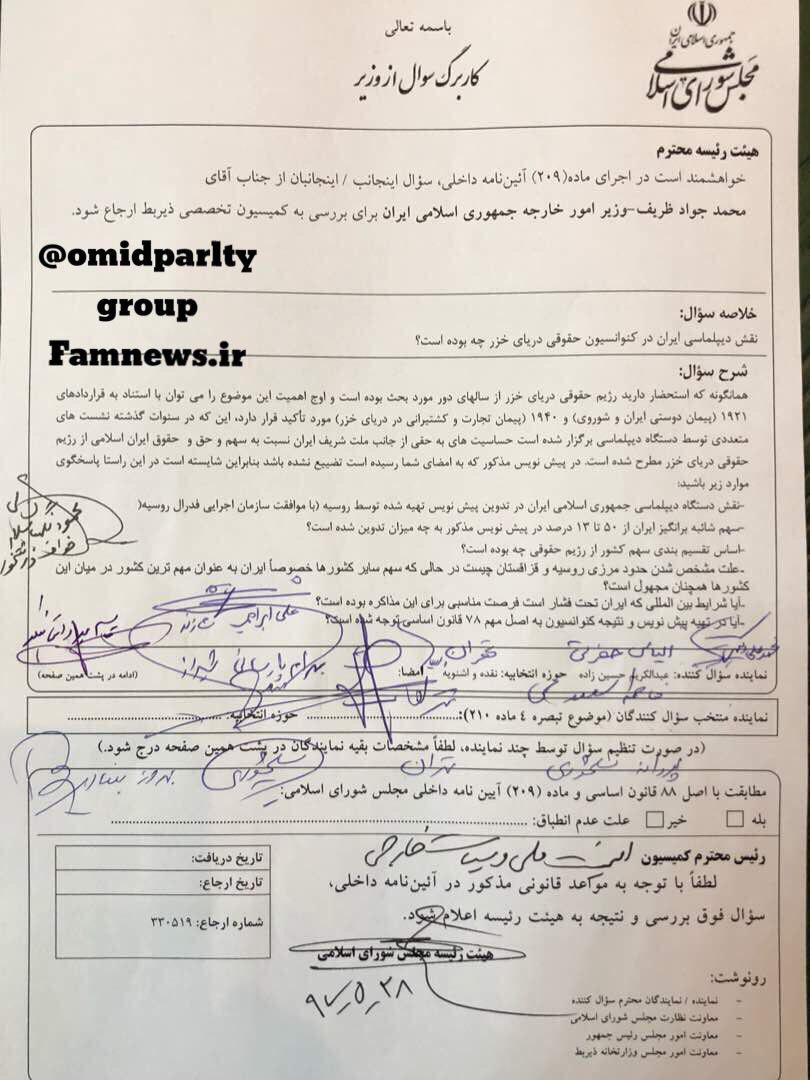 باسمه تعالی
جمهوری اسلامی ایران
مجلس شورای اسلامی
کاربرگ سوال از وزیر
هیئت رئیسه محترم
خواهشمند است در اجرای ماده(۲۰۹) آئین‌نامه داخلی، سؤال اینجانب / اینجانبان از جناب آقای
محمد جواد ظریف-وزیر امور خارجه جمهوری اسلامی ایران برای بررسی به کمیسیون تخصصی ذیربط ارجاع شود.
@omidparlty
group
Famnews.ir
خلاصه سؤال:
نقش دیپلماسی ایران در کنوانسیون حقوقی دریای خزر چه بوده است؟
شرح سؤال:
همانگونه که استحضار دارید رژیم حقوقی دریای خزر از سالهای دور مورد بحث بوده است و اوج اهمیت این موضوع را می توان با استناد به قراردادهای
۱۹۲۱ (پیمان دوستی ایران و شوروی) و ۱۹۴۰ (پیمان تجارت و کشتیرانی در دریای خزر) مورد تأکید قرار دارد، این که در سنوات گذشته نشست های
متعددی توسط دستگاه دیپلماسی برگزار شده است حساسیت های به حقی از جانب ملت شریف ایران نسبت به سهم و حق و حقوق ایران اسلامی از رژیم
حقوقی دریای خزر مطرح شده است. در پیش نویس مذکور که به امضای شما رسیده است تضییع نشده باشد بنابراین شایسته است در این راستا پاسخگوی
موارد زیر باشید:
-نقش دستگاه دیپلماسی جمهوری اسلامی ایران در تدوین پیش نویس تهیه شده توسط روسیه (با موافقت سازمان اجرایی فدرال روسیه(
-سهم شائبه برانگیز ایران از ۵۰ تا ۱۳ درصد در پیش نویس مذکور به چه میزان تدوین شده است؟
-اساس تقسیم بندی سهم کشور از رژیم حقوقی چه بوده است؟
-علت مشخص شدن حدود مرزی روسیه و قزاقستان چیست در حالی که سهم سایر کشورها خصوصاً ایران به عنوان مهم ترین کشور در میان این
کشورها همچنان مجهول است؟
-آیا شرایط بین المللی که ایران تحت فشار است فرصت مناسبی برای این مذاکره بوده است؟
-آیا در تهیه پیش نویس و نتیجه کنوانسیون به اصل مهم ۷۸ قانون اساسی توجه شده است؟
علی ابراهیمی
الیاس حضرتی تهران
بهرام پارسایی شیراز
نماینده سؤال کننده: عبدالکریم حسین زاده حوزه انتخابیه: نقده و اشنویه امضا: (ادامه در پشت همین صفحه)
فاطمه سعیدی تهران
نماینده منتخب سؤال کنندگان (موضوع تبصره ٤ ماده ۲۱۰): حوزه انتخابیه:
(در صورت تنظیم سؤال توسط چند نماینده، لطفاً مشخصات بقیه نمایندگان در پشت همین صفحه درج شود.)
پروانه سلحشوری تهران سلحشوری
مطابقت با اصل ۸۸ قانون اساسی و ماده (۲۰۹) آیین نامه داخلی مجلس شورای اسلامی:
بله خیر علت عدم انطباق:
رئیس محترم کمیسیون امنیت ملی و سیاست خارجی
لطفاً با توجه به مواعد قانونی مذکور در آئین‌نامه داخلی،
سؤال فوق بررسی و نتیجه به هیئت رئیسه اعلام شود.
تاریخ دریافت:
تاریخ ارجاع:
شماره ارجاع: ۳۳۰۵۱۹
هیئت رئیسه مجلس شورای اسلامی
۹۷_۵_۲۸
رونوشت:
- نماینده / نمایندگان محترم سؤال کننده
- معاونت نظارت مجلس شورای اسلامی
- معاونت امور مجلس رئیس جمهور
- معاونت امور مجلس وزارتخانه ذیربط